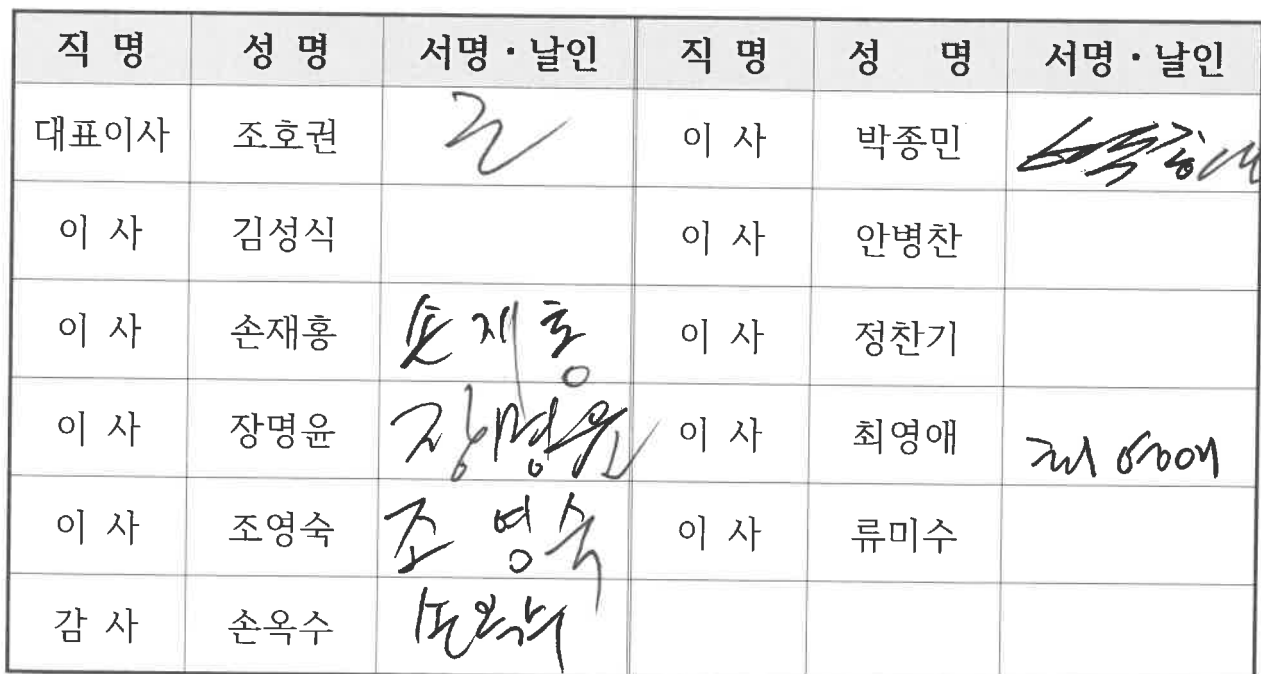 직 명 성 명 서명·날인 직 명 성 명 서명·날인
대표이사 조호권 이 사 박종민 박종민
이 사 김성식 이 사 안병찬
이 사 손재홍 손재홍 이 사 정찬기
이 사 장명윤 장명윤 이 사 최영애 최영애
이 사 조영숙 조영숙 이 사 류미수
감 사 손옥수 손옥수